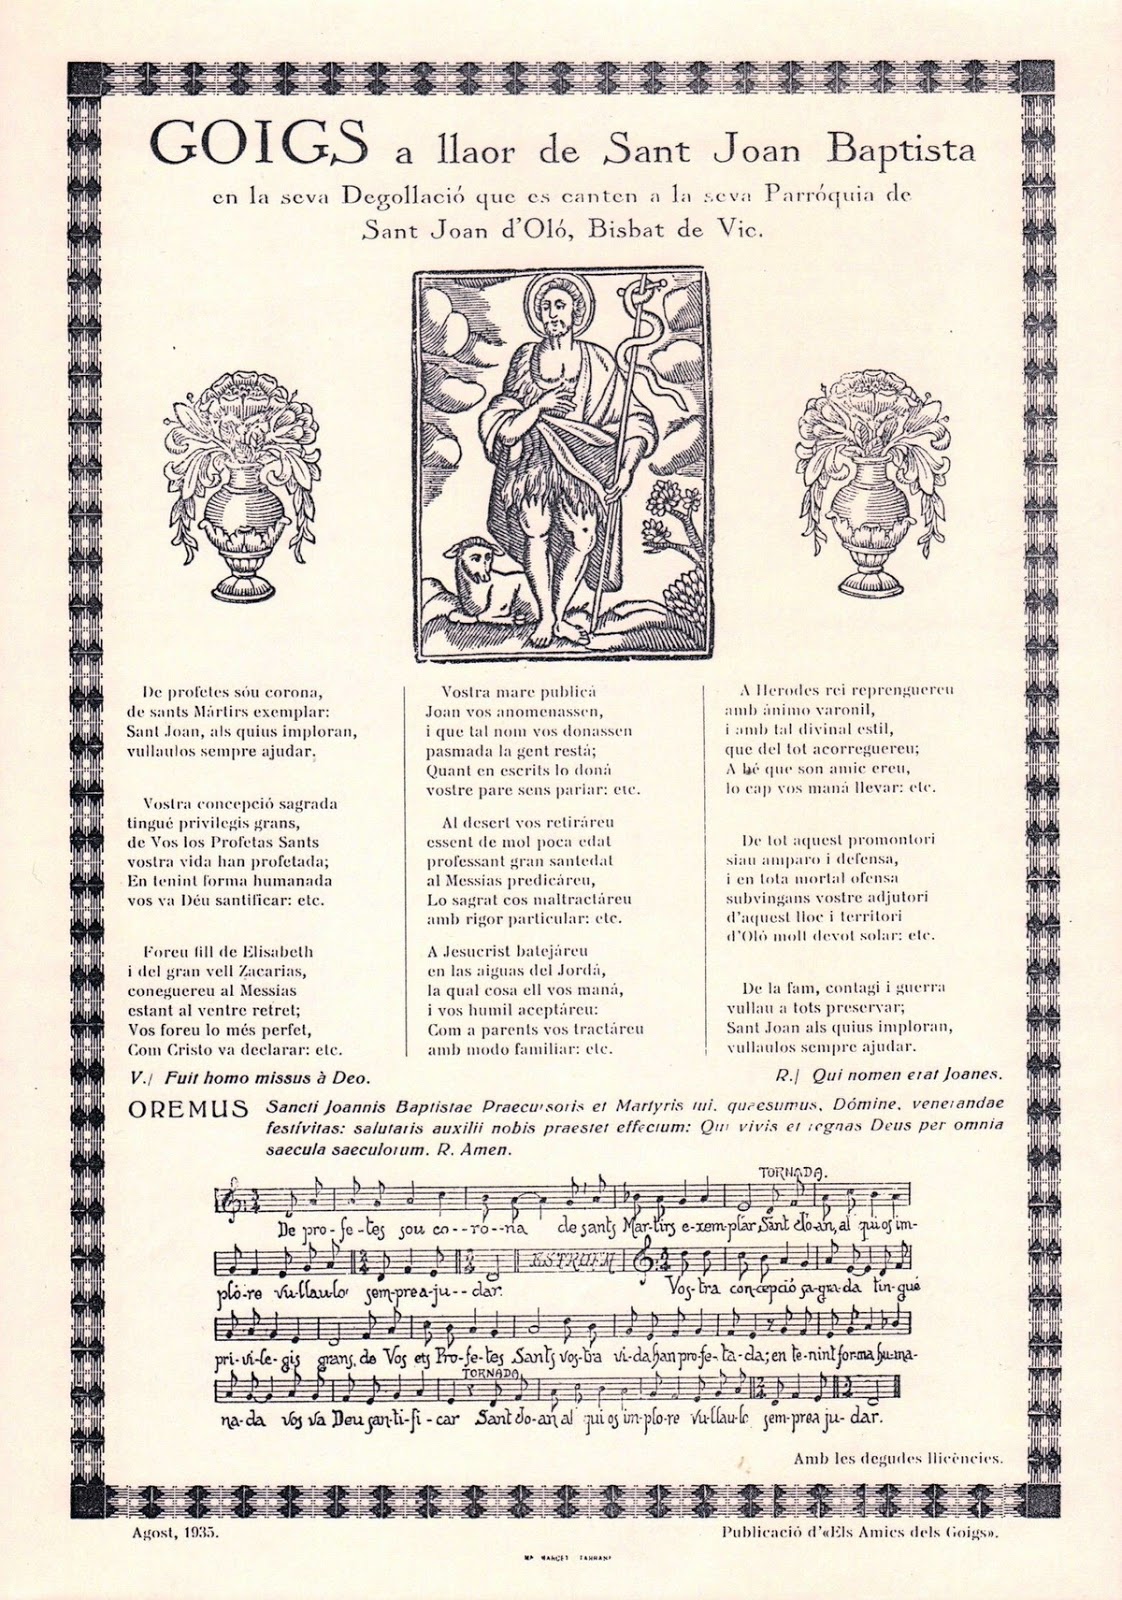 GOIGS a llaor de Sant Joan Baptista
en la seva Degollació que es canten a la seva Parróquia de
Sant Joan d'Oló, Bisbat de Vic.
De profetes sóu corona,
de sants Mártirs exemplar:
Sant Joan, als quius imploran,
vullaulos sempre ajudar.
Vostra concepció sagrada
tingué privilegis grans,
de Vos los Profetas Sants
vostra vida han profetada;
En tenint forma humanada
vos va Déu santificar: etc.
Foreu fill de Elisabeth
i del gran vell Zacarias,
coneguereu al Messias
estant al ventre retret;
Vos foreu lo més perfet,
Com Cristo va declarar: etc.
Vostra mare publicá
Joan vos anomenassen,
i que tal nom vos donassen
pasmada la gent restá;
Quant en escrits lo doná
vostre pare sens parlar: etc.
Al desert vos retiráreu
essent de mol poca edat
professant gran santedat
al Messias predicáreu,
Lo sagrat cos maltractáreu
amb rigor particular: etc.
A Jesucrist batejáreu
en las aiguas del Jordá,
la qual cosa ell vos maná,
i vos humil aceptáreu:
Com a parents vos tractáreu
amb modo familiar: etc.
A Herodes rei reprenguereu
amb ánimo varonil,
i amb tal divinal estil,
que del tot acorreguereu;
A bé que son amic ereu,
lo cap vos maná llevar: etc.
De tot aquest promontori
siau amparo i defensa,
i en tota mortal ofensa
subvingans vostre adjutori
d'aquest lloc i territori
d'Oló molt devot solar: etc.
De la fam, contagi i guerra
vullau a tots preservar;
Sant Joan als quius imploran,
vullaulos sempre ajudar.
V./ Fuit homo missus à Deo.
R./ Qui nomen erat Joanes.
OREMUS Sancti Joannis Baptistae Praecursoris et Martyris tui, quaesumus, Dómine, venerandae
festívitas: salutaris auxilii nobis praestet effectum: Qui vivis et regnas Deus per omnia
saecula saeculorum. R. Amen.
TORNADA.
De pro-fe-tes sou co--ro-na de sants Mar-tirs e-xem-plar Sant Jo-an, al qui os im-
plo-re vu-llau-lo sem-pre a-ju--dar. ESTROFA Vos-tra con-cepció sa-gra-da tin-gué
pri-vi-le-gis grans, de Vos ets Pro-fe-tes Sants vos-tra vi-da han pro-fe-ta-da; en te-nint for-ma hu-ma-
TORNADA
na-da vos va Deu san-ti-fi-car Sant Jo-an al qui os im-plo-re vu-llau-lo sem-pre a ju-dar.
Amb les degudes llicències.
Agost, 1935.
Publicació d'«Els Amics dels Goigs».